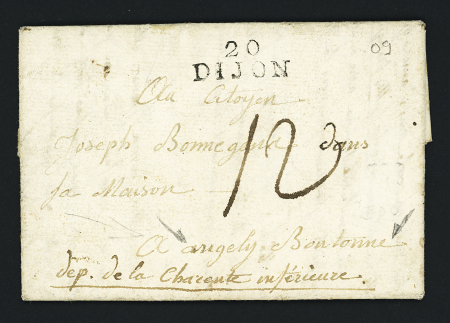 20
09
DIJON
Au Citoyen
Joseph Bonnegand dans
sa Maison
12
A angely Boutonne
dép. de la Charente inférieure.